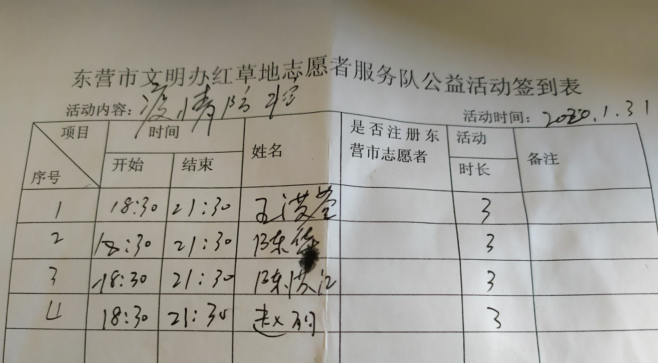 东营市文明办红草地志愿者服务队公益活动签到表
活动内容：疫情防控 活动时间：2020.1.31
项目 时间 姓名 是否注册东营市志愿者 活动时长 备注
序号 开始 结束
1 18:30 21:30 王 3
2 18:30 21:30 陈 3
3 18:30 21:30 陈洪江 3
4 18:30 21:30 赵 3